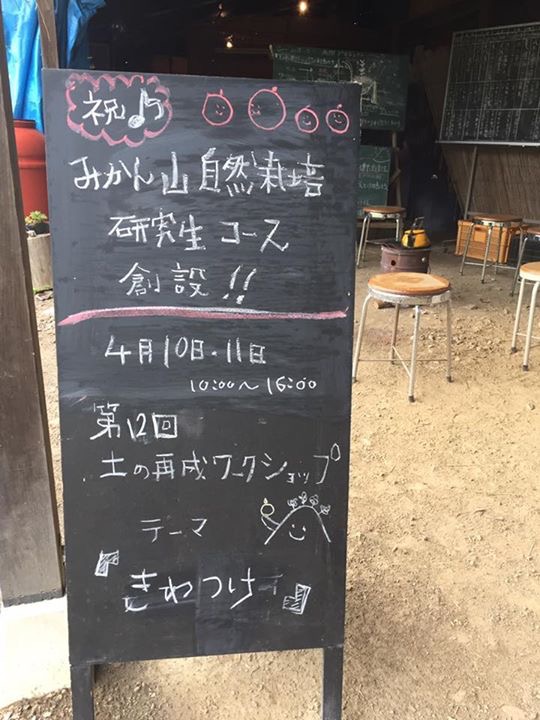 祝♪
みかん山自然栽培
研究生コース
創設!!
4月10日・11日
10:00〜16:00
第12回
土の再成ワークショップ
テーマ
『きわつけ』